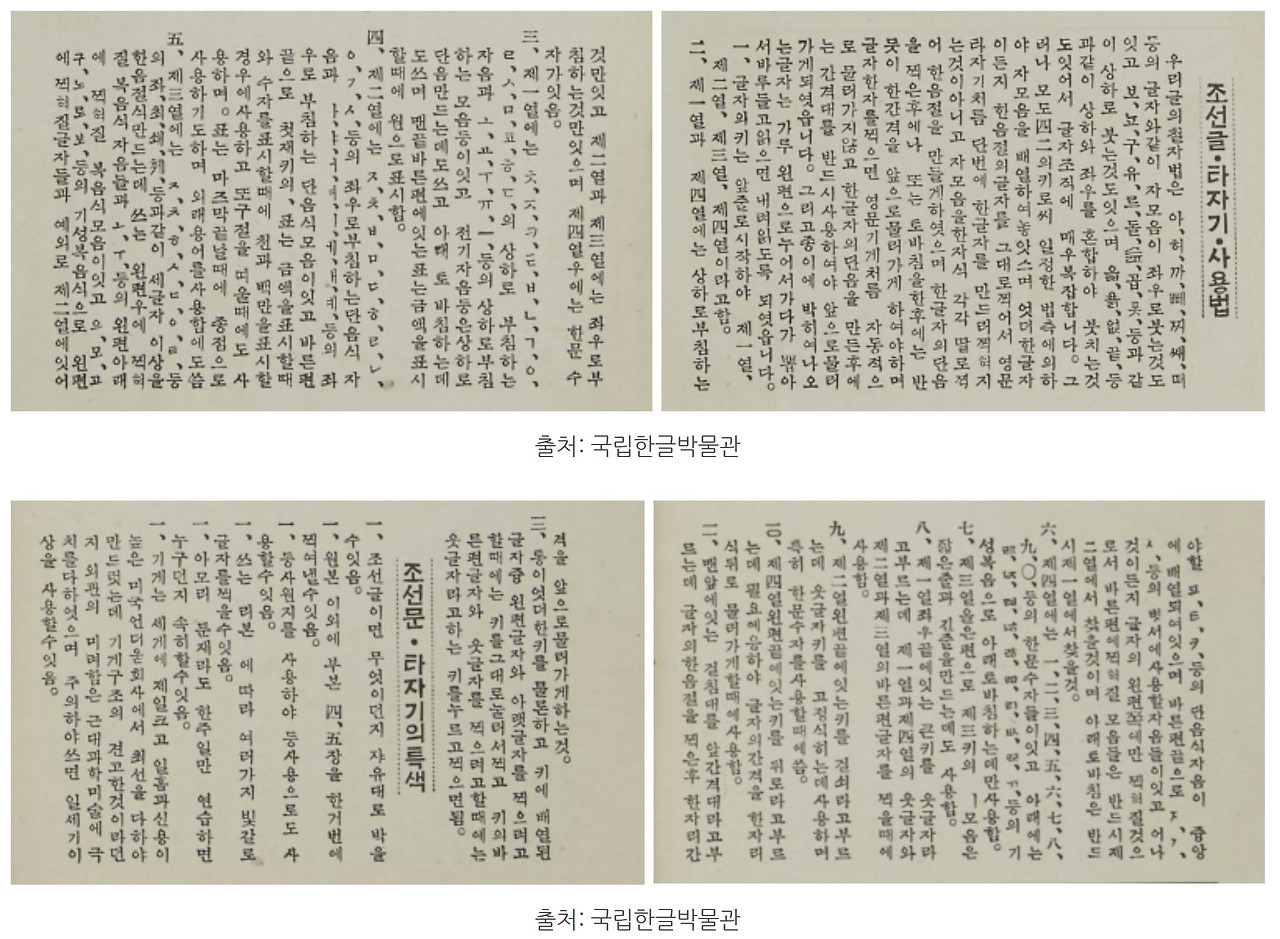 조선글·타자기·사용법
우리글의 철자법은 아, 허, 까, 뻬, 찌, 쌔, 떠
등의 글자와같이 자모음이 좌우로붓는것도
잇고 보, 뇨, 구, 유, 르, 돌, 곱, 곳, 등과 같
이 상하로 붓는것도잇으며 읊, 흙, 없, 끝, 등
과같이 상하와 좌우를 혼합하야 붓치는것
도잇어서 글자조직에 매우복잡합니다. 그
러나 모도四二의키로써 일정한 법측에의하
야 자모음을 배열하여놓앗스며 엇더한글자
이든지 한음절의글자를 그대로찍어서 영문
타자기처름 단번에 한글자를 만드러찍혀지
는것이아니고 자모음을한자식 각각 딸로찍
어 한음절을 만들게하엿으며 한글자의단음
을 찍은후에나 또는 토바침을한후에는 반
듯이 한간격을 앞으로물러가게 하여야하며
글자한자를찍으면 영문기게처름 자동적으
로 물러가지않고 한글자의단음을 만든후에
는 간격대를 반드시사용하여야 앞으로물러
가게되엿읍니다. 그리고종이에 박히여나오
는글자는 가루 왼편으로누어서가다가 뽑아
서바루들고읽으면 내려읽도록 되엿읍니다.
一、 글자의키는 앞줄로시작하야 제一열,
제二열, 제三열, 제四열이라고함.
二、 제一열과 제四열에는 상하로부침하는
것만잇고 제二열과 제三열에는 좌우로부
침하는것만잇으며 제四열우에는 한문 수
자가잇음.
三、 제一열에는 ㅊ, ㅈ, ㅋ, ㄷ, ㅂ, ㄴ, ㄱ, ㅇ,
ㄹ, ㅅ, ㅁ, ㅍ, ㅎ, ㄷ의 상하로 부침하는
자음과 ㅗ, ㅛ, ㅜ, ㅠ, ㅡ, 등의 상하로부침
하는 모음등이잇고 전기자음등은상하로
단음만드는데도쓰고 아래 토 바침하는데
도쓰며 맨끝바른편에잇는표는금액을표시
할때에 원으로표시함.
四、 제二열에는 ㅈ, ㅊ, ㅂ, ㅁ, ㄷ, ㅎ, ㄹ, ㄴ,
ㅇ, ㄱ, ㅅ, 등의 좌우로부침하는단음식 자
음과 ㅏ, ㅑ, ㅓ, ㅕ, ㅣ, ㅐ, ㅔ, ㅖ 등의 좌
우로 부침하는 단음식모음이잇고 바른편
끝으로 첫재키의、표는 금액을표시할때
와 수자를표시할때에 천과 백만을표시할
경우에사용하고 또구절을 떼울때에도 사
용하며。표는 마즈막끝날때에 종점으로
사용하기도하며 외래용어를사용함에도씀
五、 제三열에는 ㅈ, ㅊ, ㅎ, ㅅ, ㄷ, ㅇ, ㄹ, 등
의 좌, 최, 쇄, 등과같이 세글자 이상을
한음절식만드는데 쓰는 왼편우에 찍혀
질 복음식 자음들과 ㅗ, ㅜ, 등의 왼편아래
에 찍혀질 복음식모음이잇고 으, 모, 고
구, 노, 로, 보, 등의 기성복음식으로 왼편
에 찍혀질글자들과 예외로 제二열에잇어
출처: 국립한글박물관
야할 ㅍ, ㅌ, ㅋ, 등의 단음식자음이 중앙
에 배열되여잇으며 바른편끝으로
등의 벗서에사용할자음들이잇고 어나
것이든지 글자의 왼편쪽에만 찍혀질것으
로서 바른편에찍혀질 모음들은 반드시제
二열에서 찾을것이며 아래토바침은 반드
시제一열에서찾을것.
六、 제四열에는 一, 二, 三, 四, 五, 六, 七, 八,
九, 〇, 등의 한문수자들이잇고 아래에는
등의 기
성복음으로 아래토바침하는데만사용함.
七、 제三열을은편으로 제三키의 ㅣ모음은
짧은줄과 긴줄을만드는데도 사용함.
八、 제一열좌우끝에잇는 큰키를 웃글자라
고부르는데 제一열과제四열의 웃글자와
제二열과제三열의바른편글자를 찍을때에
사용함.
九、 제二열왼편끝에잇는키를 걸쇠라고부르
는데 웃글자키를 고정식히는데사용하며
특히 한문수자를사용할때에씀.
一〇、 제四열왼편끝에잇는키를 뒤로라고부르
는데 필요에응하야 글자의간격을 한자리
식뒤로 물러가게할때에사용함.
二、 맨앞에잇는 결침대를 앞간격대라고부
르는데 글자의한음절을 찍은후 한자리간
격을 앞으로물러가게하는것.
三、 통이엇더한키를 물론하고 키에 배열된
글자중 왼편글자와 아랫글자를 찍으려고
할때에는 키를그대로눌러서찍고 키의바
른편글자와 웃글자를 찍으려고할때에는
웃글자라고하는 키를누르고찍으면됨.
조선문·타자기의특색
一、 조선글이면 무엇이던지 자유대로 박을
수잇음.
一、 원본 이외에 부본 四, 五장을 한거번에
찍여낼수잇음.
一、 등사원지를 사용하야 등사용으로도 사
용할수잇음.
一、 쓰는 리본 에 따라 여러가지 빛갈로
글자를찍을수잇음.
一、 아모리 둔재라도 한주일만 연습하면
누구던지 속히할수잇음.
一、 기게는 세게에 제일크고 일홈과신용이
높은 미국언더욷회사에서 최선을 다하야
만드럿는데 기게구조의 견고한것이라던
지 외관의 미려함은 근대과학미술에 극
치를다하엿으며 주의하야쓰면 일세기이
상을 사용할수잇음.
출처: 국립한글박물관